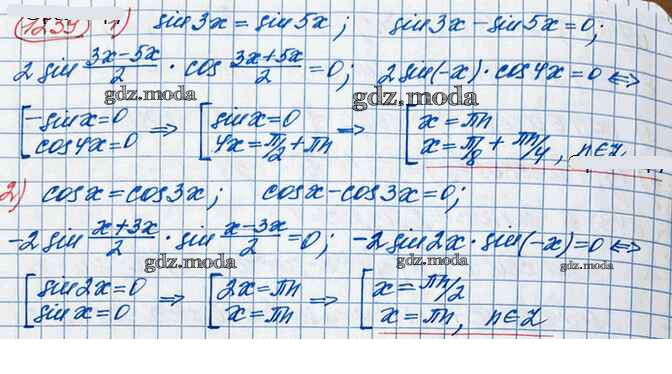 1239 1) sin3x = sin5x; sin3x - sin5x = 0;
2 sin (3x-5x)/2 · cos (3x+5x)/2 = 0; 2 sin(-x) · cos4x = 0 ⇔
gdz.moda gdz.moda
[-sinx = 0 ⇒ [sinx = 0 ⇒ [x = πn
[cos4x = 0 [4x = π/2 + πn [x = π/8 + πn/4, n∈Z
gdz.moda
2) cosx = cos3x; cosx - cos3x = 0;
-2 sin (x+3x)/2 · sin (x-3x)/2 = 0; -2 sin2x · sin(-x) = 0 ⇔
gdz.moda gdz.moda gdz.moda
[sin2x = 0 ⇒ [2x = πn ⇒ [x = πn/2
[sinx = 0 [x = πn [x = πn, n∈Z